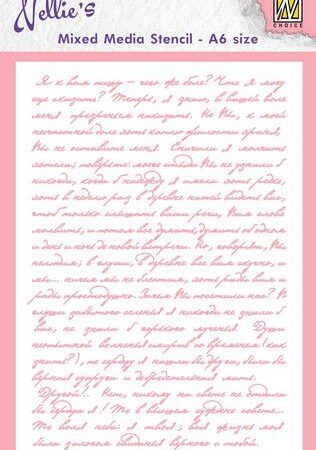 Nellie's
N
CHOICE
Mixed Media Stencil - A6 size
Я к вам пишу — чего же боле? Что я могу
еще сказать? Теперь, я знаю, в вашей воле
меня презреньем наказать. Но Вы, к моей
несчастной доле хоть каплю жалости храня,
Вы не оставите меня. Сначала я молчать
хотела; поверьте: моего стыда Вы не узнали б
никогда, когда б надежду я имела хоть редко,
хоть в неделю раз в деревне нашей видеть вас,
чтоб только слышать ваши речи, Вам слово
молвить, и потом все думать, думать об одном
и день и ночь до новой встречи. Но, говорят, Вы
нелюдим; в глуши, в деревне все вам скучно, и
мы... ничем мы не блестим, хоть рады вам и
рады простодушно. Зачем Вы посетили нас? В
глуши забытого селенья я никогда не знала б
вас, не знала б горького мученья. Души
неопытной волненья смирив со временем (как
знать?), по сердцу я нашла бы друга, была бы
верная супруга и добродетельная мать.
Другой!.. Нет, никому на свете не отдала
бы сердца я! То в высшем суждено совете...
То воля неба: я твоя; вся жизнь моя
была залогом свиданья верного с тобой.